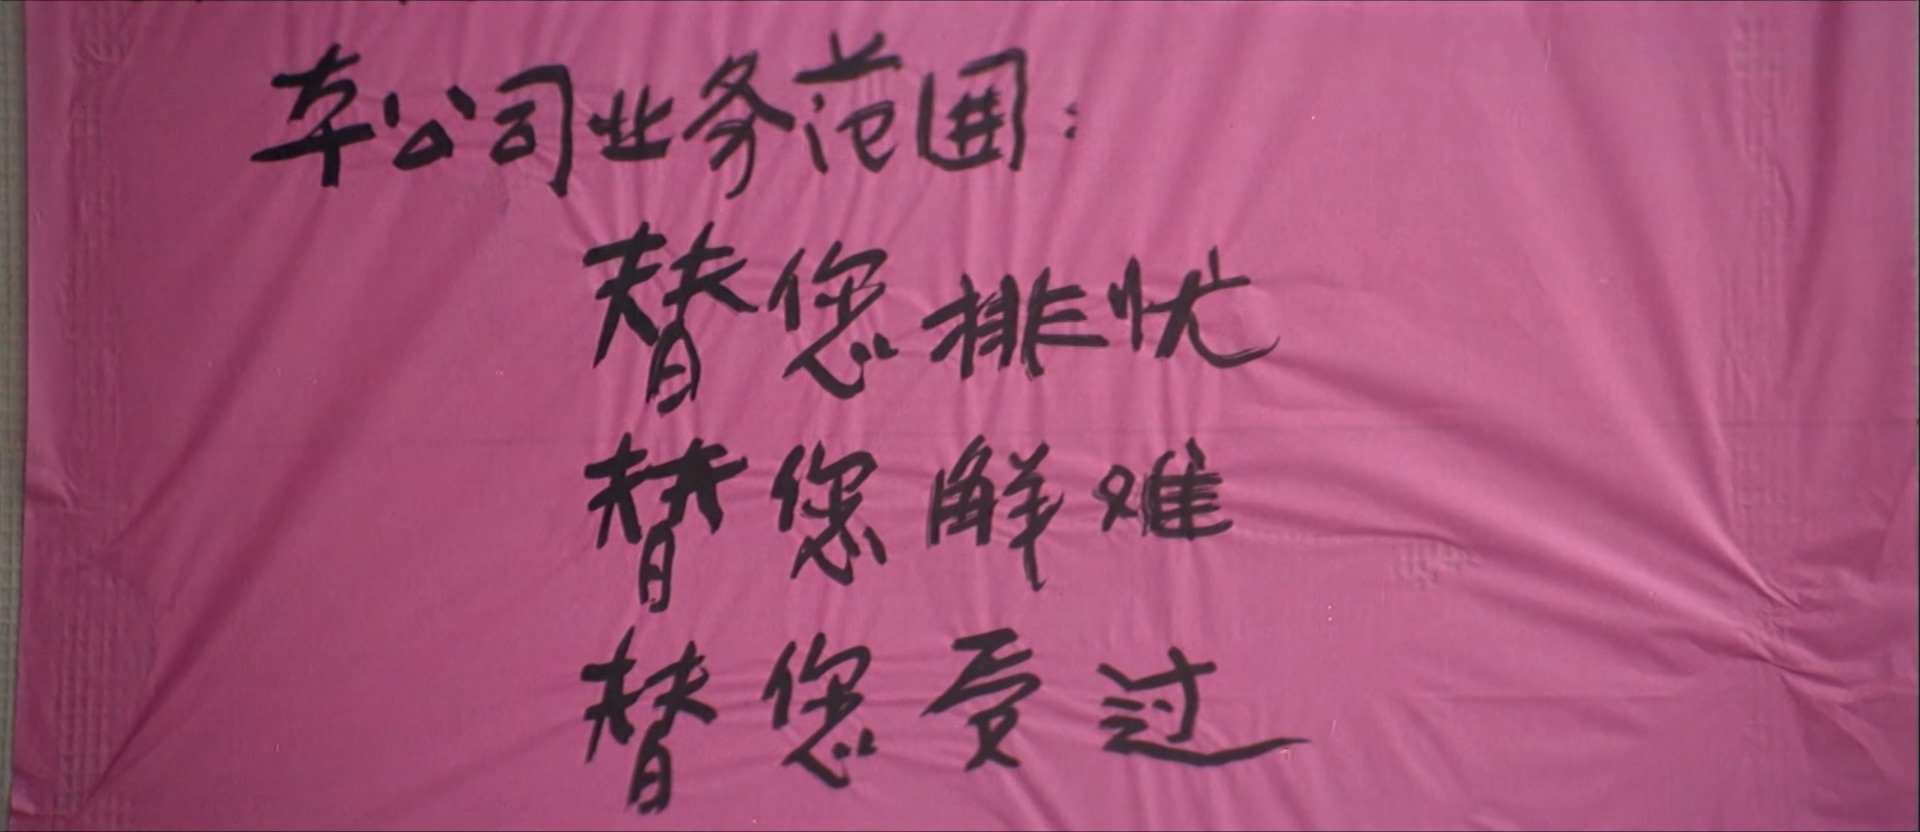 本公司业务范围：
替您排忧
替您解难
替您受过